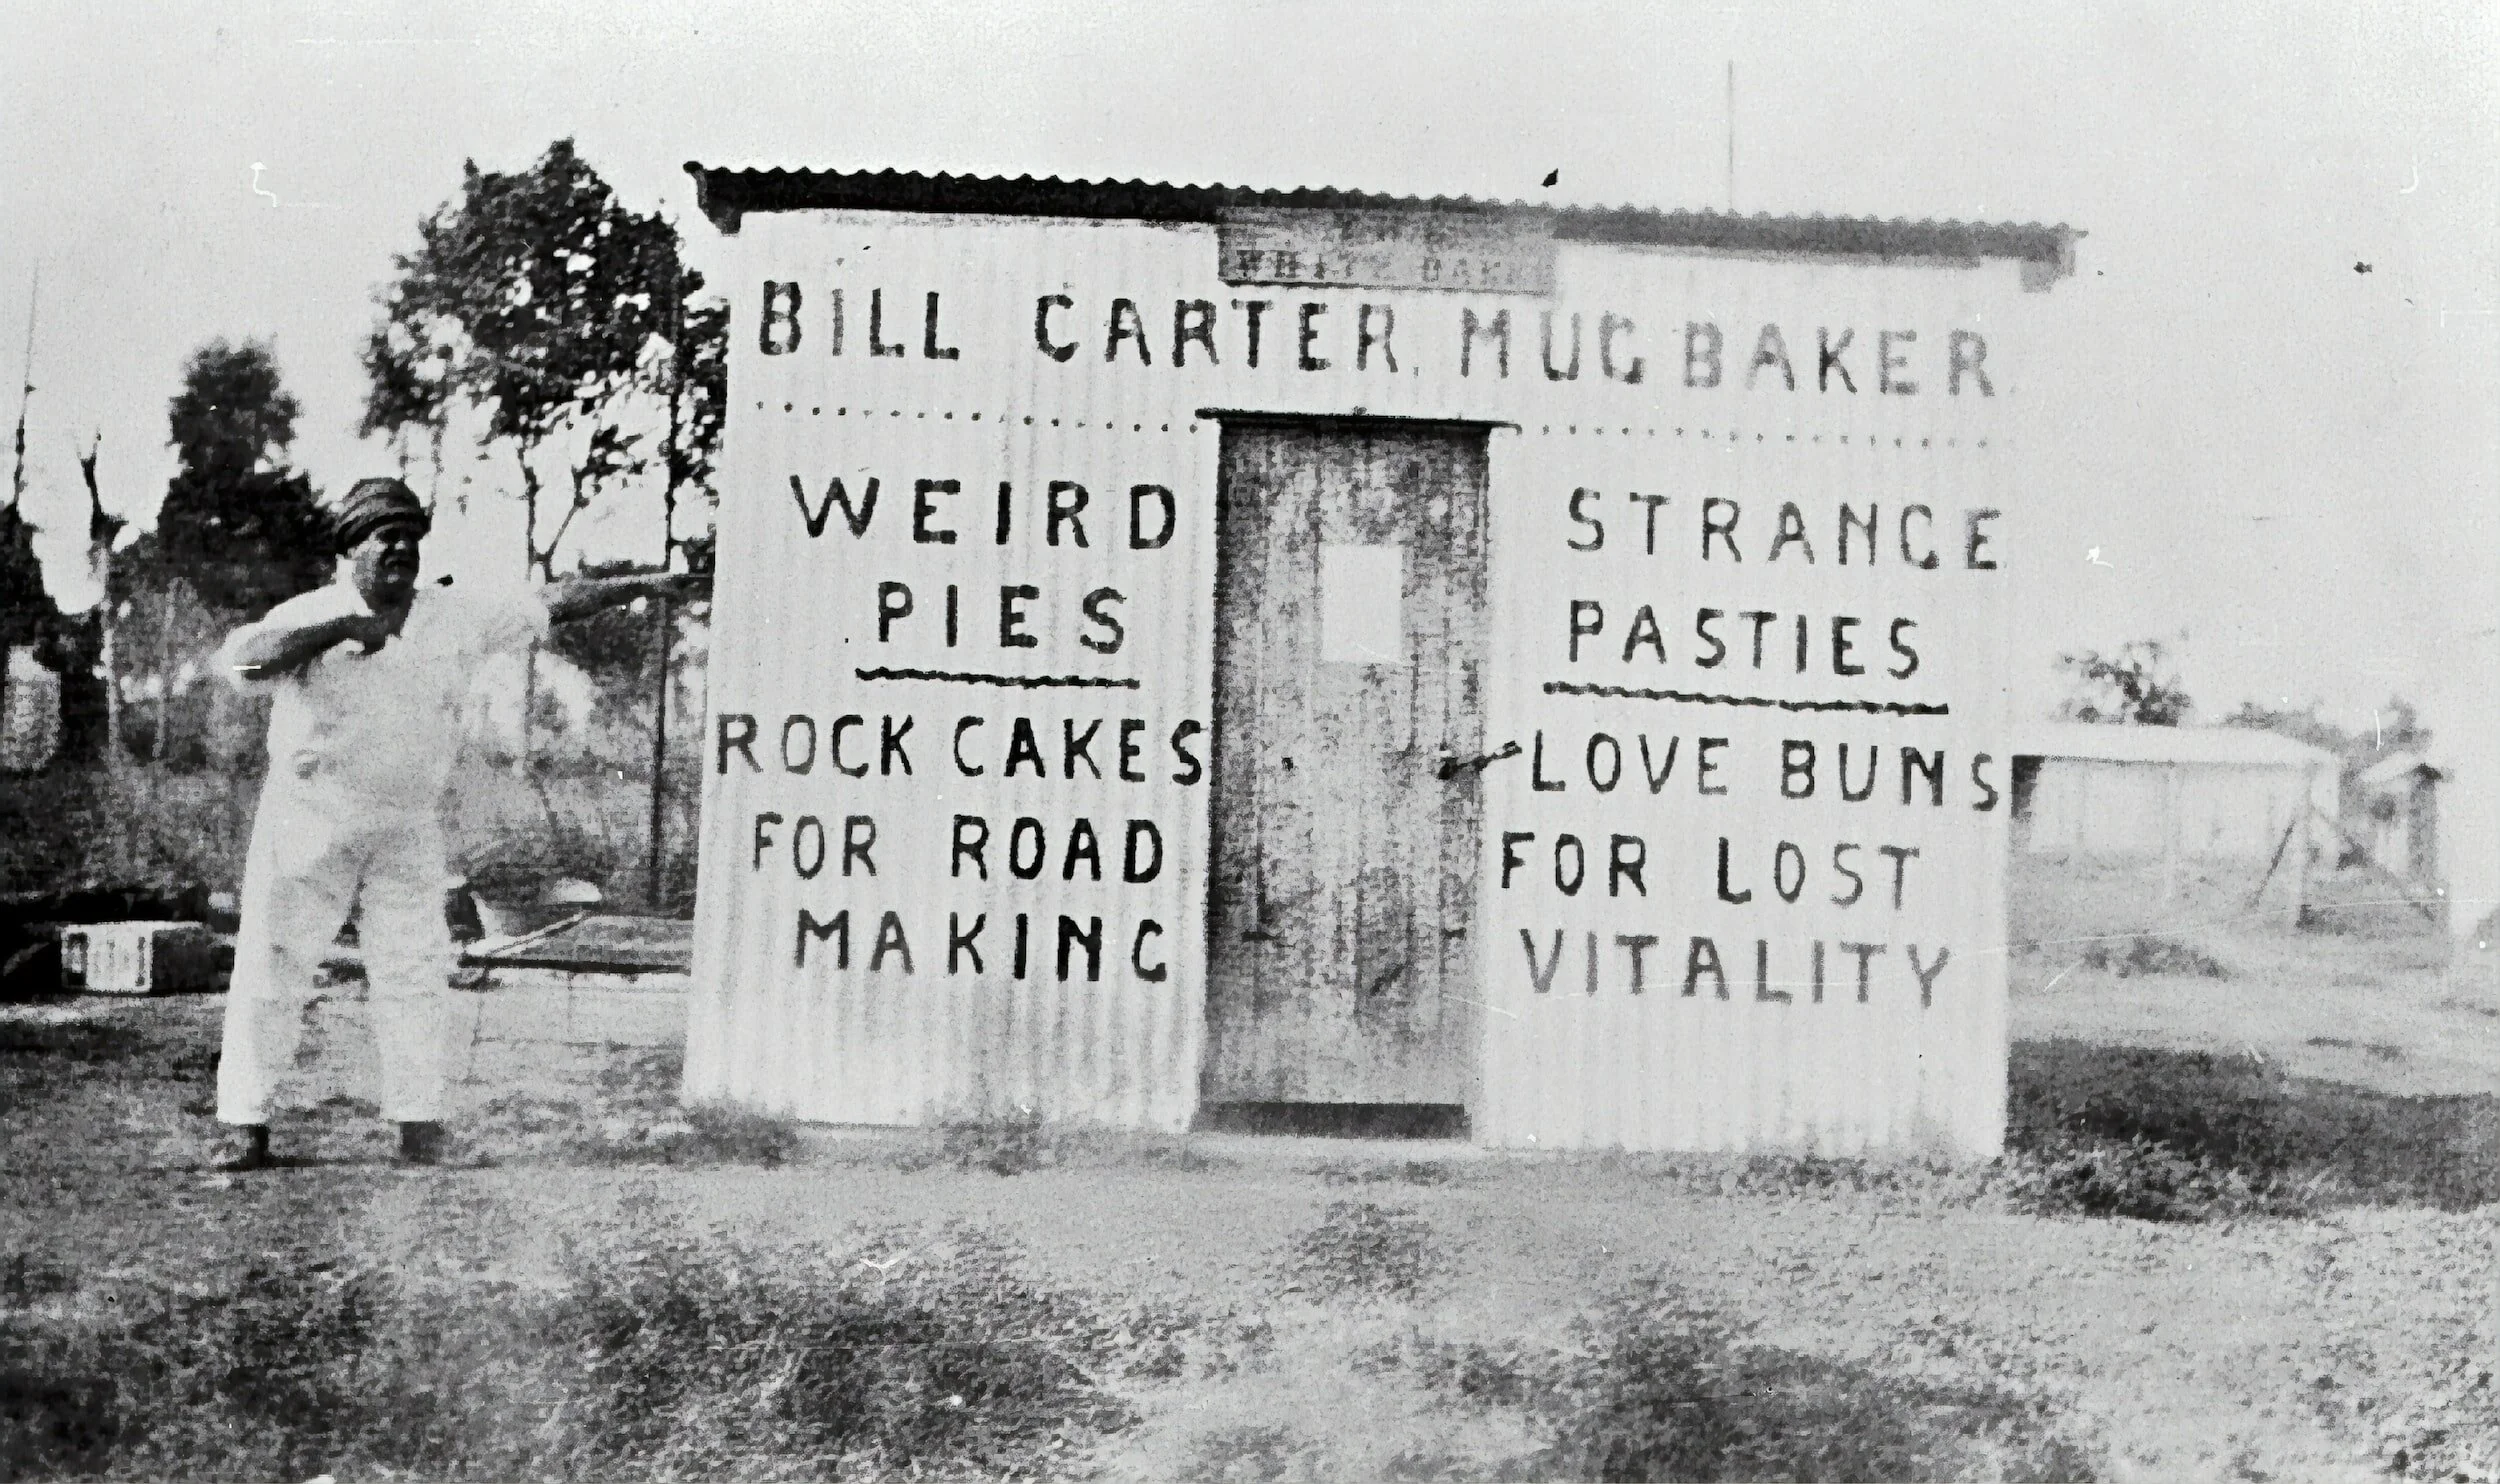 BILL CARTER. MUG BAKER
WEIRD
PIES
ROCK CAKES
FOR ROAD
MAKING
STRANGE
PASTIES
LOVE BUNS
FOR LOST
VITALITY